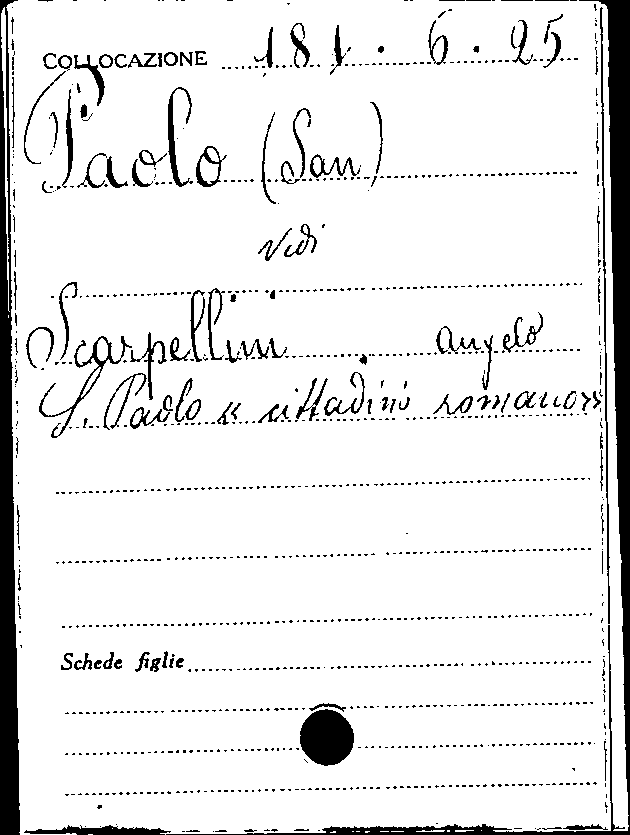 COLLOCAZIONE 181.6.25
Paolo (San)
Vedi
Scarpellini Angelo
S. Paolo « cittadini romano»
Schede figlie